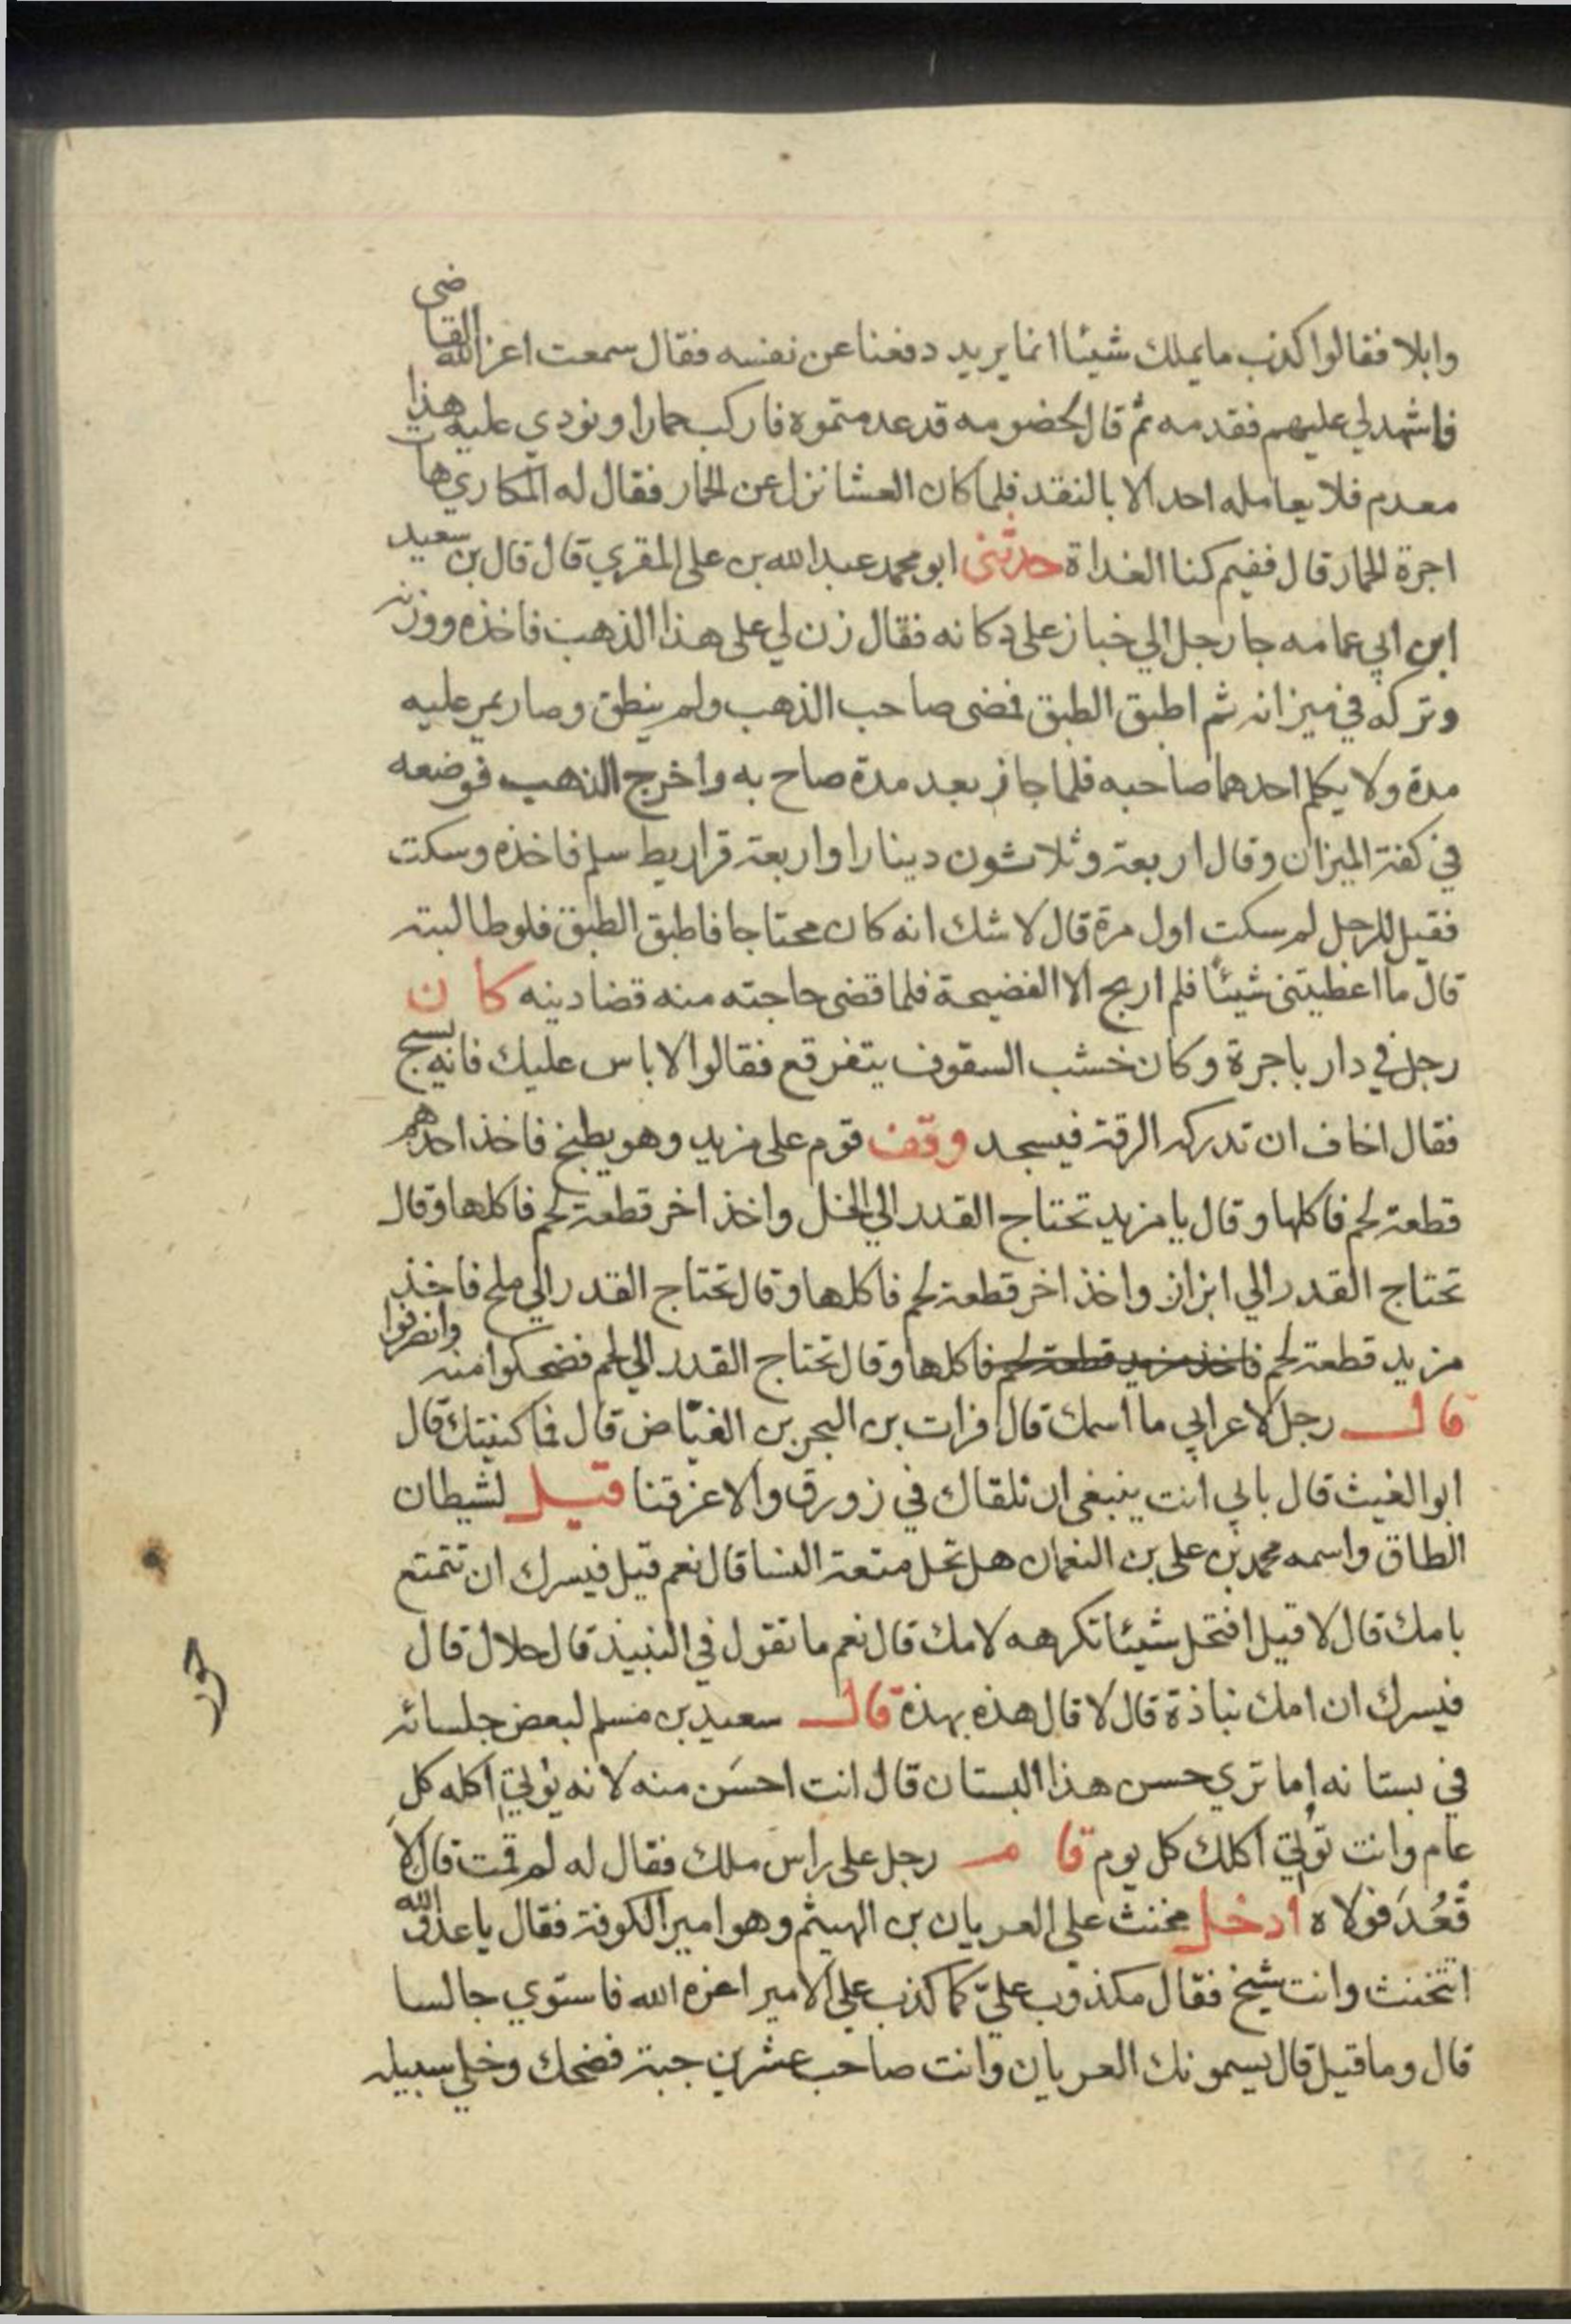 وابلا فقالوا كذب مايملك شيئا انما يريد دفعنا عن نفسه فقال سمعت اعز الله القاضى
فاشهد لي عليهم فقدمه ثم قال لخضومه قد عدمتموه فاركب حمارا ونودي عليه هذا
معدم فلا يعامله احد الا بالنقد فلما كان العشا نزل عن الحمار فقال له المكاري هات
اجرة الحمار قال ففيم كنا الغداة حدثنى ابو محمد عبد الله بن على المقري قال قال بن سعيد
ابن ابي عمامه جا رجل الي خباز على دكانه فقال زن لي على هذا الذهب فاخذه ووزنه
وتركه في ميزانه ثم اطبق الطبق فمضى صاحب الذهب ولم ينطق وصار يمر عليه
مدة ولا يكلم احدهما صاحبه فلما جاز بعد مدة صاح به واخرج الذهب فوضعه
في كفة الميزان وقال اربعة وثلاثون دينارا واربعة قراريط سلم فاخذه وسكت
فقيل للرجل لم سكت اول مرة قال لا شك انه كان محتاجا فاطبق الطبق فلو طالبته
قال ما اعطيتنى شيئا فلم اربح الا الفضيحة فلما قضى حاجته منه قضا دينه كان
رجل في دار باجرة وكان خشب السقوف يتفرقع فقالوا لا باس عليك فانه يسبح
فقال اخاف ان تدركه الرقة فيسجد وقف قوم على مزيد وهو يطبخ فاخذ احدهم
قطعة لحم فاكلها وقال يا مزيد تحتاج القدر الي الخل واخذ اخر قطعة لحم فاكلها وقال
تحتاج القدر الي ابزاز واخذ اخر قطعة لحم فاكلها وقال تحتاج القدر الي ملح فاخذ
مزيد قطعة لحم فاخذ مزيد قطعة لحم فاكلها وقال تحتاج القدر الي لحم فضحكوا منه وانصرفوا
قال رجل لاعرابي ما اسمك قال فرات بن البحر بن الفياض قال فما كنيتك قال
ابو الغيث قال بابي انت ينبغى ان نلقاك في زورق والا غرقتنا قيل لشيطان
الطاق واسمه محمد بن على بن النعمان هل تحل متعة النسا قال نعم قيل فيسرك ان تتمتع
بامك قال لا قيل افتحل شيئا تكرهه لامك قال نعم ما تقول في النبيذ قال حلال قال
فيسرك ان امك نباذة قال لا قال هذه بهذة قال سعيد بن مسلم لبعض جلسائه
في بستانه اما تري حسن هذا البستان قال انت احسن منه لانه يؤتي اكله كل
عام وانت تؤتي اكلك كل يوم قام رجل على راس ملك فقال له لم قمت قال لا
قعد فولاه ادخل مخنث على العريان بن الهيثم وهو امير الكوفة فقال يا عدو الله
اتتخنث وانت شيخ فقال مكذوب علي كما كذب على الامير اعزه الله فاستوي جالسا
قال وما قيل قال يسمونك العريان وانت صاحب عشرين جبة فضحك وخلي سبيله